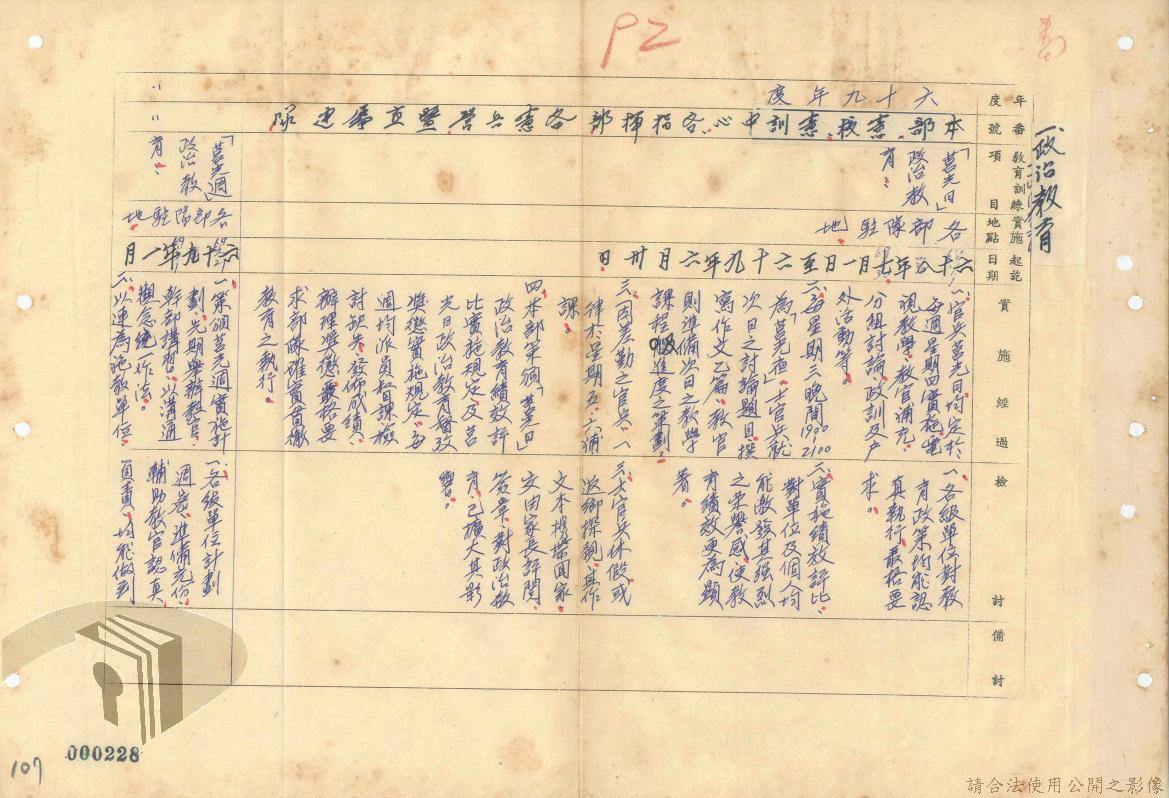 P2
一、政治教育
年度
番號
教育訓練項目
實施地點
起訖日期
實施經過
檢討
備討
六十九年度
本部、憲校、憲訓中心、各指揮部、各憲兵營暨直屬連隊
「莒光日」
政治教
育：
各部隊駐地
六十八年七月一日至六十九年六月卅日
一、官兵莒光日、均定於
每週星期四實施電
視教學、教官補充、
分組討論、政訓及戶
外活動等。
二、每星期三晚間1900-2100
為「莒光夜」、士官兵就
次日之討論題目、撰
寫作文乙篇、教官
則準備次日之教學
課程、進度之策劃。
三、因差勤之官兵、一
律於星期五、六補
課。
四、本部策頒「莒光日」
政治教育績效評
比實施規定及莒
光日政治教育
獎懲實施規定、每
週均派員督課檢
討缺失、發佈成績、
辦理獎懲嚴格要
求部隊確實貫徹
教育之執行。
一、各級單位對教
育政策均能認
真執行、嚴格要
求。
二、實施績效評比、
對單位及個人均
能激發其強烈
之榮譽感、使教
育績效更為顯
著。
三、士官兵休假或
返鄉探親、其作
文本攜帶回家、
交由家長評閱、
簽章、對政治教
育、已擴大其影
響。
〃
〃
「莒光週」
政治教
育：
各部隊駐地
六十九年一月
一、策頒莒光週實施計
劃、先期舉辦教官、
幹部講習、以溝通
觀念統一作法。
二、以連為施教單位、
一、各級單位計劃
週密、準備充份、
輔助教官認真
負責、均能做到
000228
107
請合法使用公開之影像